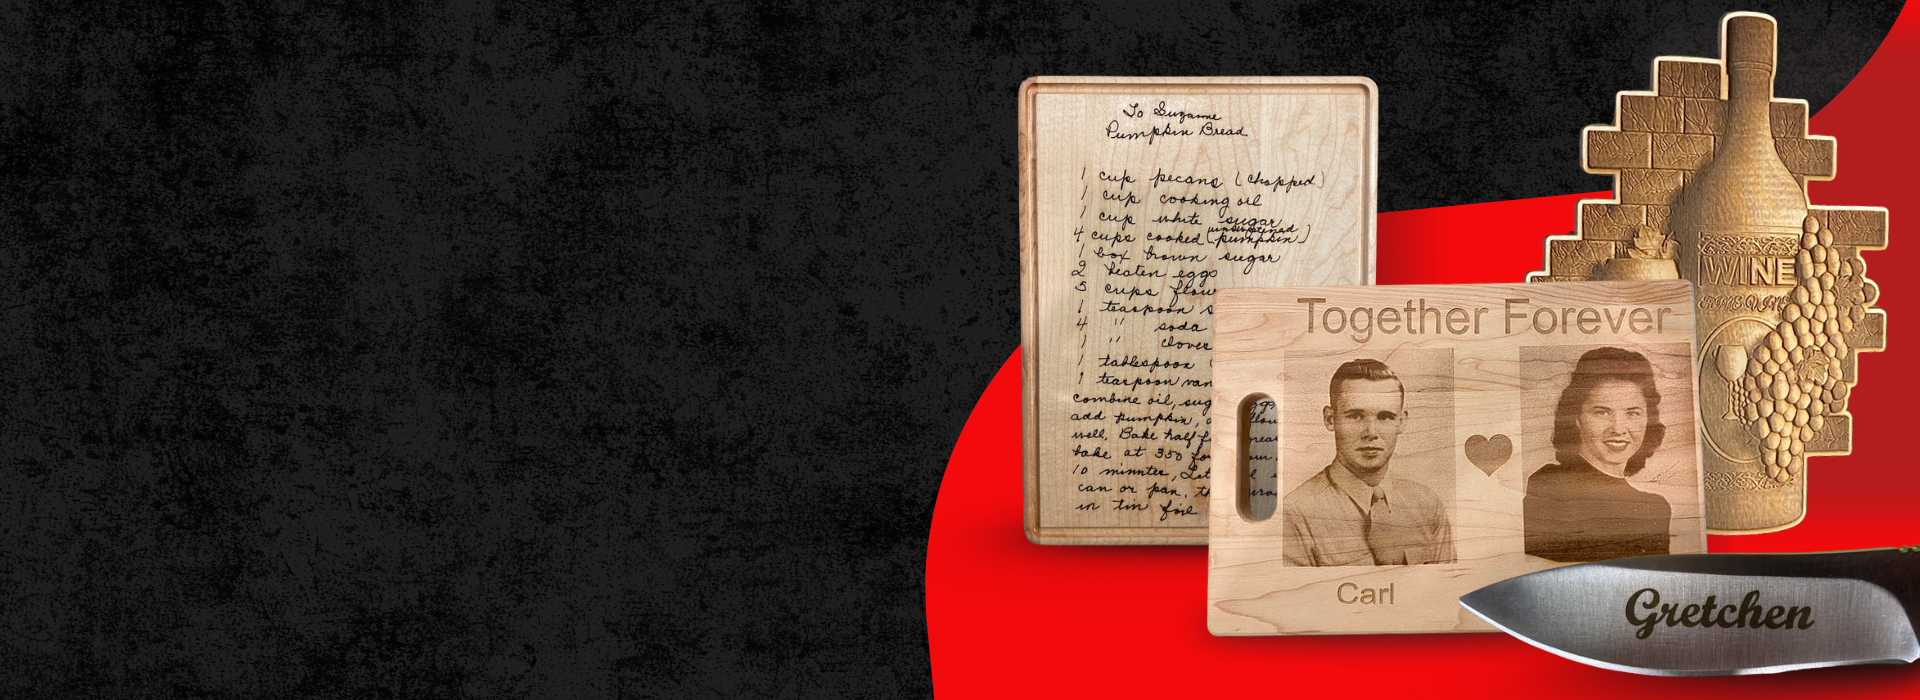 To Suzanne
Pumpkin Bread
1 cup pecans (chopped)
1 cup cooking oil
1 cup white sugar
unsweetened
4 cups cooked (pumpkin)
1 box brown sugar
2 beaten eggs
5 cups flour
1 teaspoon s
4 " soda
1 " cloves
1 tablespoon
1 teaspoon van
combine oil, sug
add pumpkin,
well, Bake half f
bake at 350 for
10 minutes, Let
can or pan, th
in tin foil
Together Forever
Carl
WINE
Gretchen